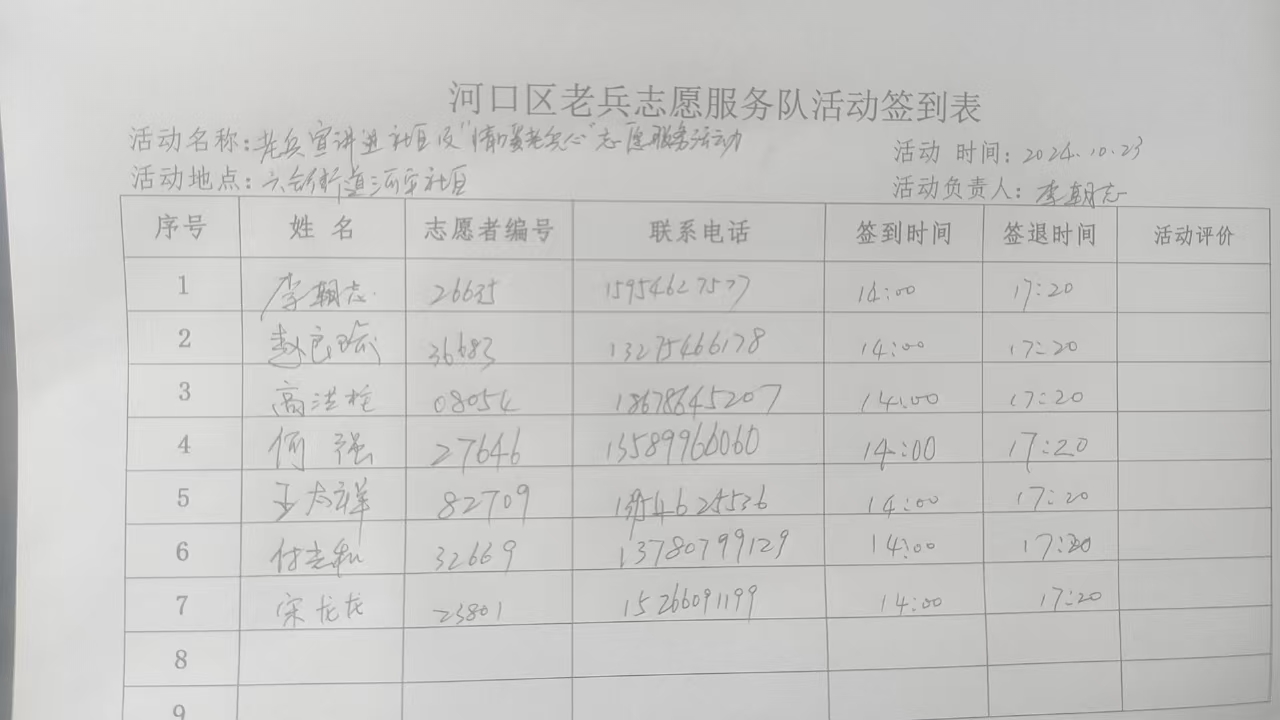 河口区老兵志愿服务队活动签到表
活动名称：老兵宣讲进社区及"情暖老兵心"志愿服务活动
活动时间：2024.10.23
活动地点：六合街道河安社区
活动负责人：李朝志
序号 姓名 志愿者编号 联系电话 签到时间 签退时间 活动评价
1 李朝志 26635 15954627577 14:00 17:20
2 赵良瑜 36683 13275466178 14:00 17:20
3 高洪 08054 18678645207 14:00 17:20
4 何强 27646 13589966060 14:00 17:20
5 王友祥 82709 14:00 17:20
6 付志和 32669 13780799129 14:00 17:20
7 宋龙龙 23801 15266091199 14:00 17:20
8
9